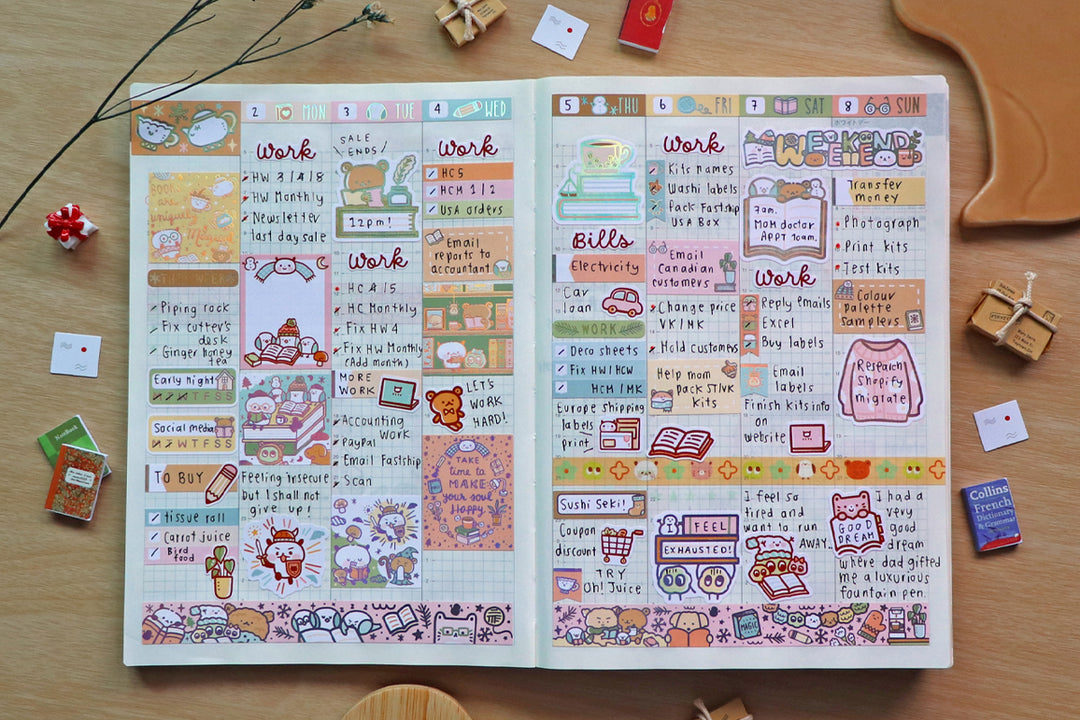 2 MON
3 TUE
4 WED
5 THU
6 FRI
7 SAT
8 SUN
ホワイトデー
BOOKS
are
uniquely
Magic
Piping rock
Fix cutter's
desk
Ginger honey
tea
Early night
M T W T F S S
Social media
M T W T F S S
TO BUY
tissue roll
Carrot juice
Bird
food
Work
HW 3/4/8
HW Monthly
Newsletter
last day sale
Feeling insecure
but I shall not
give up!
SALE
ENDS
12pm!
Work
HC 4/5
HC Monthly
Fix HW4
Fix HW Monthly
(Add month)
MORE
WORK
Accounting
Work
PayPal
Email Fastship
Scan
Work
HC5
HCM 1/2
USA orders
Email
reports to
accountant
LET'S
WORK
HARD!
TAKE
time to
MAKE
your soul
Happy
Bills
Electricity
Car
loan
WORK
Dero sheets
Fix HW/HCW
HCM/MK
Europe shipping
labels
print
Sushi Seki!
Coupon
discount
TRY
Oh! Juice
Work
Kits names
Washi labels
Pack Fastship
USA Box
Email
Canadian
customers
Change price
VK/MK
Hold customers
Help mom
pack ST/VK
kits
I FEEL
EXHAUSTED!
WEEKEND
WEEKEND
7am.
MOM doctor
APPT 10am.
Work
Reply emails
Excel
Buy labels
Email
labels
Finish kits info
on
website
I feel so
tired and
want to run
AWAY.
Transfer
money
Photograph
Print kits
Test kits
Colour
palette
samplers
Research
Shopify
migrate
GOOD
DREAM
I had a
very
good
dream
where dad gifted
me a luxurious
fountain pen.
MAGIC
Collins
French
Dictionary
& Grammar